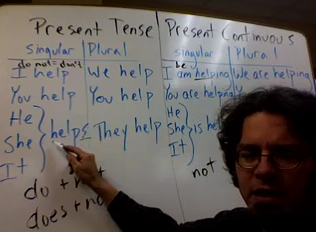 Present Tense Present Continuous
singular Plural singular Plural
do not = don't be
I help We help I am helping We are helping
You help You help You are helping You
He He
She helps They help She is he
It It
do + n t not
does + no